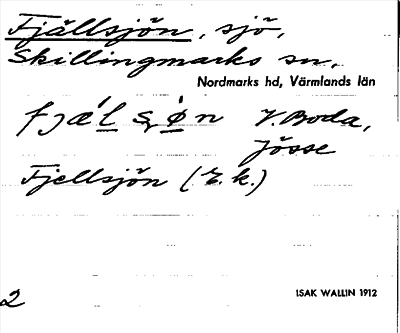 Fjällsjön, sjö,
Skillingmarks sn,
Nordmarks hd, Värmlands län
fjæ´l sø´n V. Boda,
Jösse
Fjellsjön (E.k.)
2
ISAK WALLIN 1912